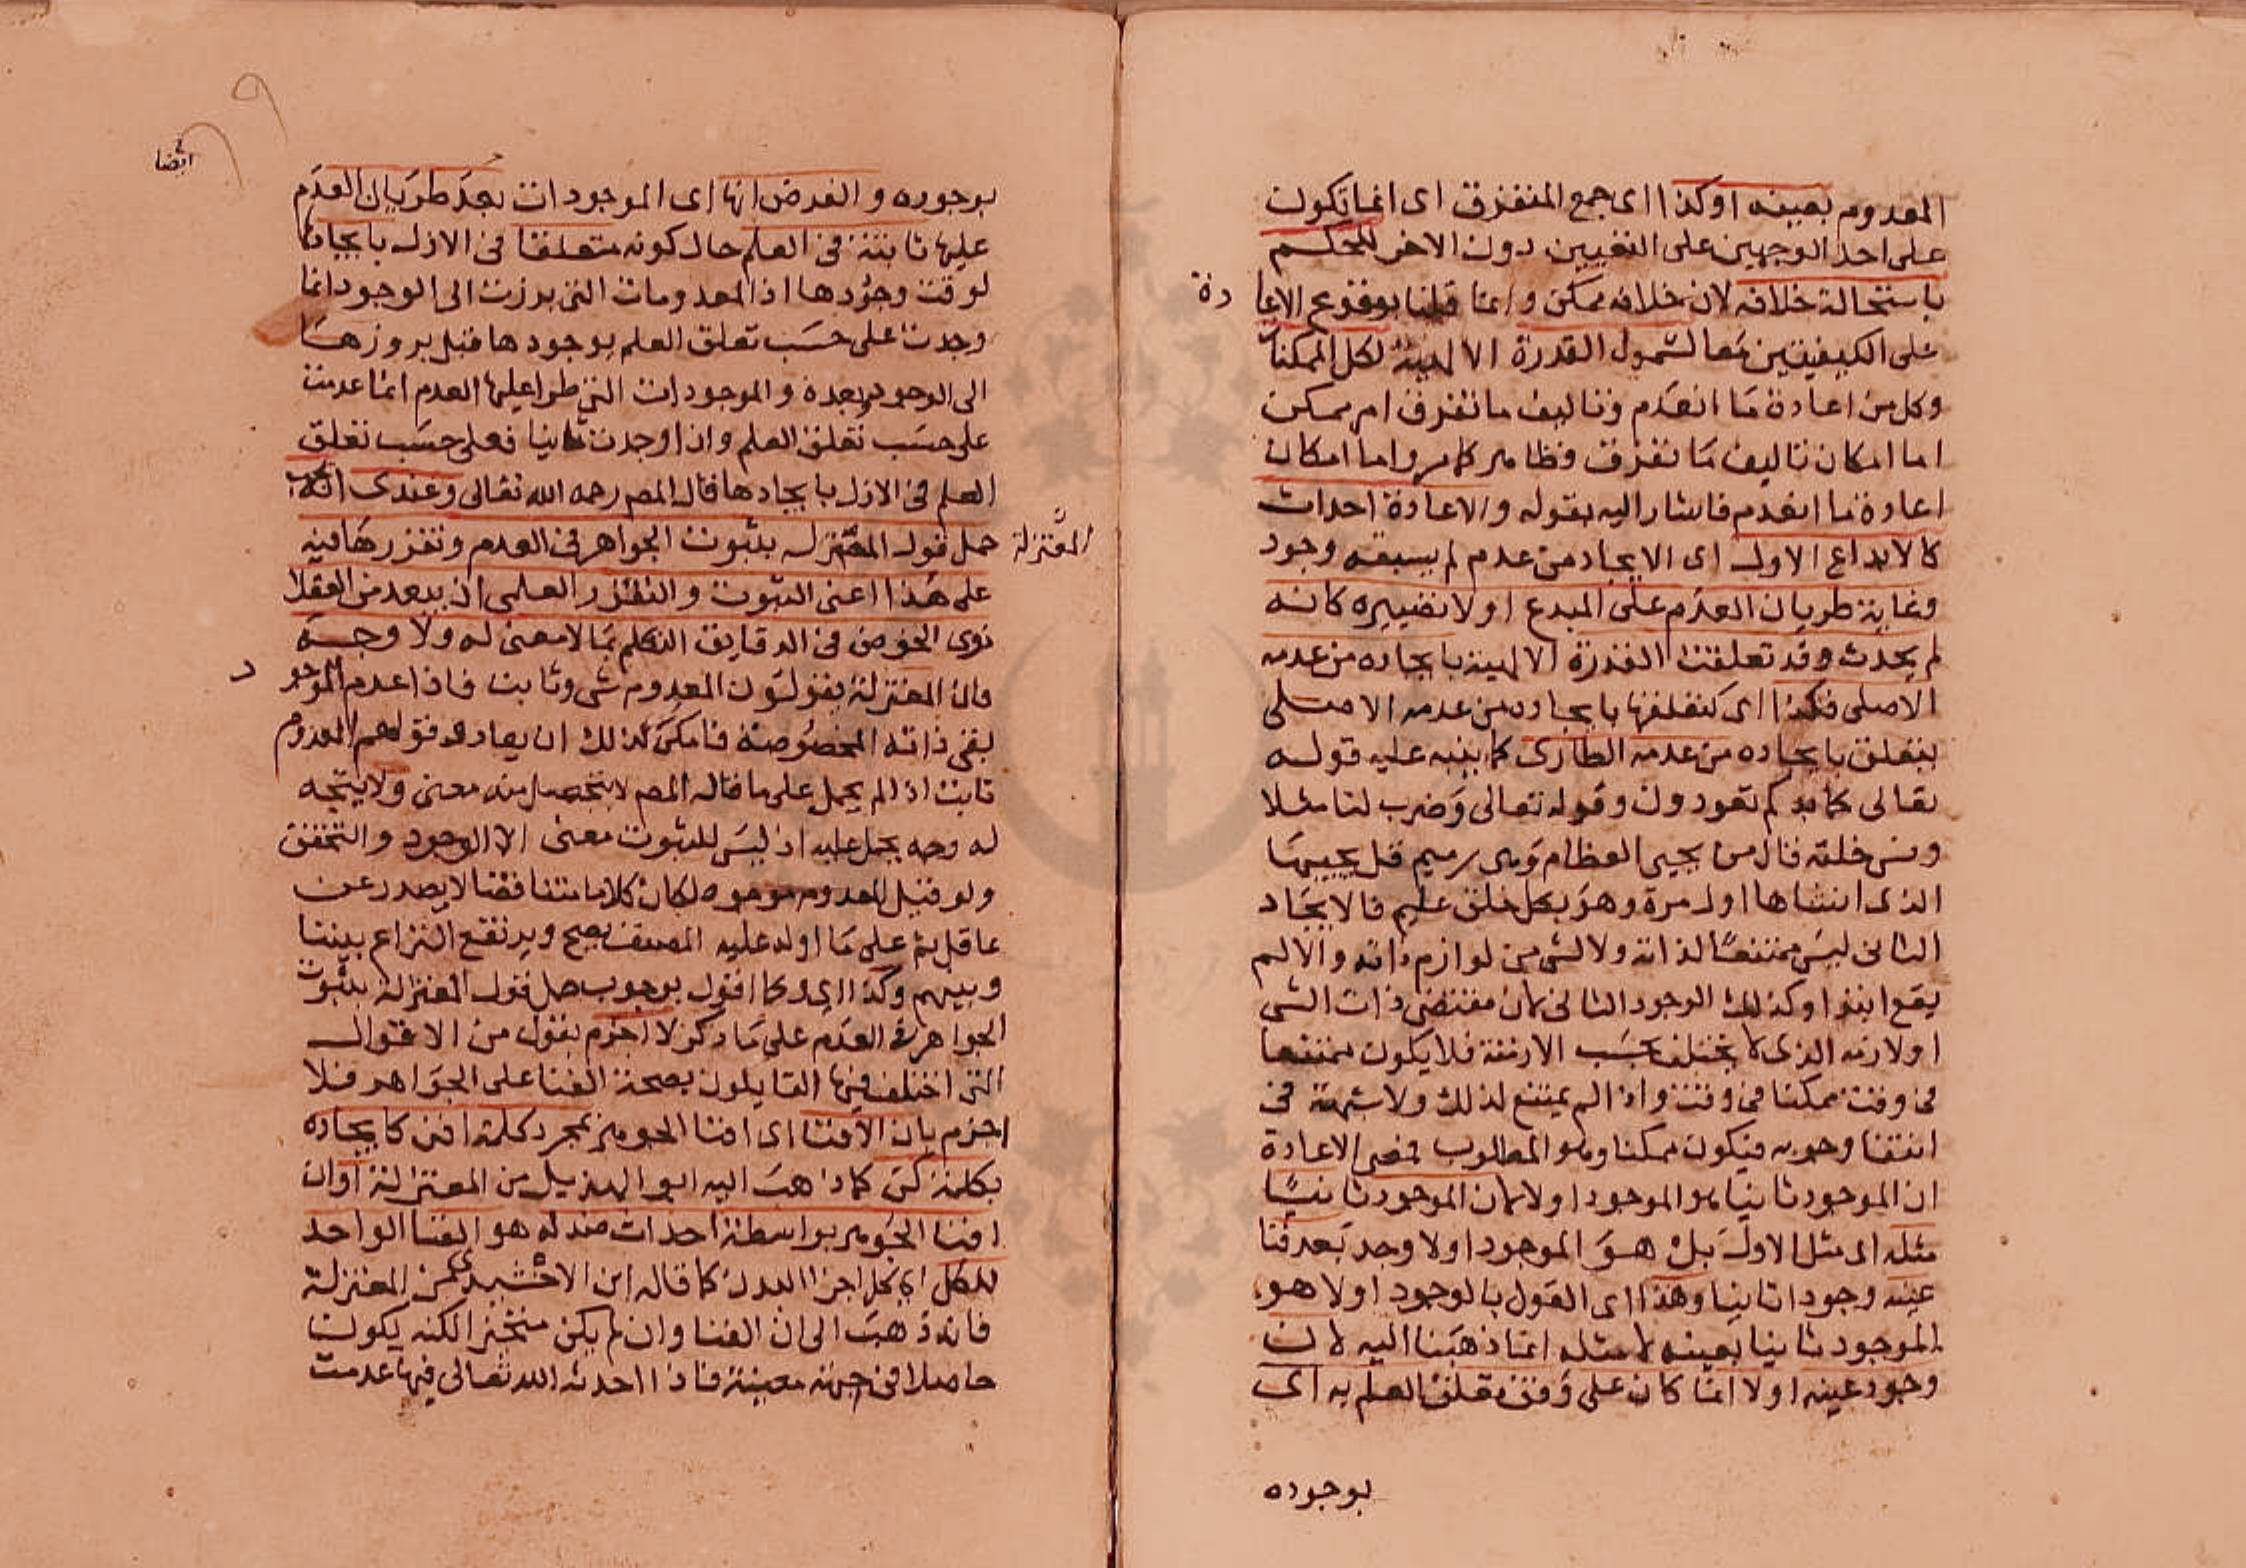 المعدوم بعينه او كذا اى جمع المتفرق اى انما تكون
على احد الوجهين على التعيين دون الاخر للحكم
باستحالة خلافه لان خلافه ممكن وانما قلنا بوقوع الاعا دة
على الكيفيتين معا لشمول القدرة الالهية لكل الممكنات
وكل من اعادة ما انعدم وتاليف ما تفرق امر ممكن
اما امكان تاليف ما تفرق فظاهر كما مر واما امكان
اعادة ما انعدم فاشار اليه بقوله والاعادة احداث
كالابداع الاول اى الايجاد من عدم لم يسبقه وجود
وغاية طريان العدم على المبدع اولا تصييره كانه
لم يحدث وقد تعلقت القدرة الالهية بايجاده من عدمه
الاصلى فكذا اى كتعلقها بايجاده من عدمه الاصلى
يتعلق بايجاده من عدمه الطارى كما ينبه عليه قوله
تعالى كما بدكم تعودون وقوله تعالى وضرب لنا مثلا
ونسى خلقه قال من يحيى العظام وهى رميم قل يحييها
الذى انشاها اول مرة وهو بكل خلق عليم فالايجاد
الثانى ليس ممتنعا لذاته ولا لشى من لوازم ذاته والا لم
يقع ابتدا وكذلك الوجود الثانى لان مقتضى ذات الشى
او لازمه الذى لا يختلف بحسب الازمنة فلا يكون ممتنعا
فى وقت ممكنا فى وقت واذا لم يمتنع لذلك ولا شبهة فى
انتفا وجوبه فيكون ممكنا وهو المطلوب فمعنى الاعادة
ان الموجود ثانيا هو الموجود اولا لا ان الموجود ثانيا
مثله اى مثل الاول بل هو الموجود اولا وجد بعد فنا
عينه وجودا ثانيا وهذا اى القول بالوجود اولا هو
الموجود ثانيا بعينه لا مثله انما ذهبنا اليه لان
وجود عينه اولا انما كان على وفق تعلق العلم به اى
بوجوده
ايضا
بوجوده والفرض انها اى الموجودات بعد طريان العدم
عليها ثابتة فى العلم حال كونه متعلقا فى الازل بايجادها
لوقت وجودها اذ المعدومات التى برزت الى الوجود انما
وجدت على حسب تعلق العلم بوجودها قبل بروزها
الى الوجود وبعده والموجودات التى طرا عليها العدم انما عدمت
على حسب تعلق العلم وان اوجدت ثانيا فعلى حسب تعلق
العلم فى الازل بايجادها قال المصر رحمه الله تعالى وعندى انه يجب
حمل قول المعتزلة بثبوت الجواهر فى العدم وتقررها فيه
المعتزلة
على هذا اعنى الثبوت والتقرر العلمى اذ يبعد من العقلا
ذوى الخوض فى الدقايق التكلم بما لا معنى له ولا وجه
فان المعتزلة يقولون المعدوم شى وثابت فاذا عدم الموجو د
بقى ذاته المخصوصة فامكن لذلك ان يعاد وقولهم المعدوم
ثابت اذا لم يحمل على ما قاله المصم لا يتحصل منه معنى ولا يتجه
له وجه يحمل عليه اذ ليس للثبوت معنى الا الوجود والتحقق
ولو قيل المعدوم موجود لكان كلاما متناقضا لا يصدر عن
عاقل ثم على ما اوله عليه المصنف يصح ويرتفع النزاع بيننا
وبينهم وكذا اى وكما اقول بوجوب حمل قول المعتزلة بثبوت
الجواهر فى العدم على ما ذكر لا اجزم بقول من الاقوال
التى اختلف فيها القايلون بصحة الفنا على الجواهر فلا
اجزم بان الافنا اى افنا الجوهر بمجرد كلمة افن كايجاده
بكلمة كن كما ذهب اليه ابو الهذيل من المعتزلة او ان
افنا الجوهر بواسطة احداث ضد له هو الفنا الواحد
للكل اى لكل اجزا البدن كما قاله ابن الاخشيد من المعتزلة
فانه ذهب الى ان الفنا وان لم يكن متحيزا لكنه يكون
حاصلا فى جهة معينة فاذا احدثه الله تعالى فيها عدمت